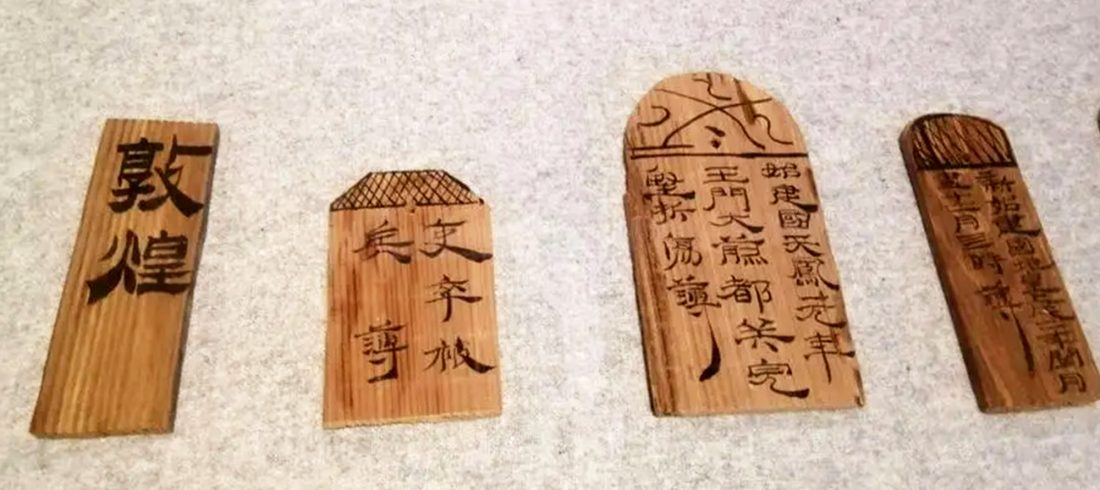 敦煌
吏卒被
兵簿
始建國天鳳元年
玉門大煎都兵完
堅折傷簿
新始建國地皇上戊年閏月
盡十二月三時簿